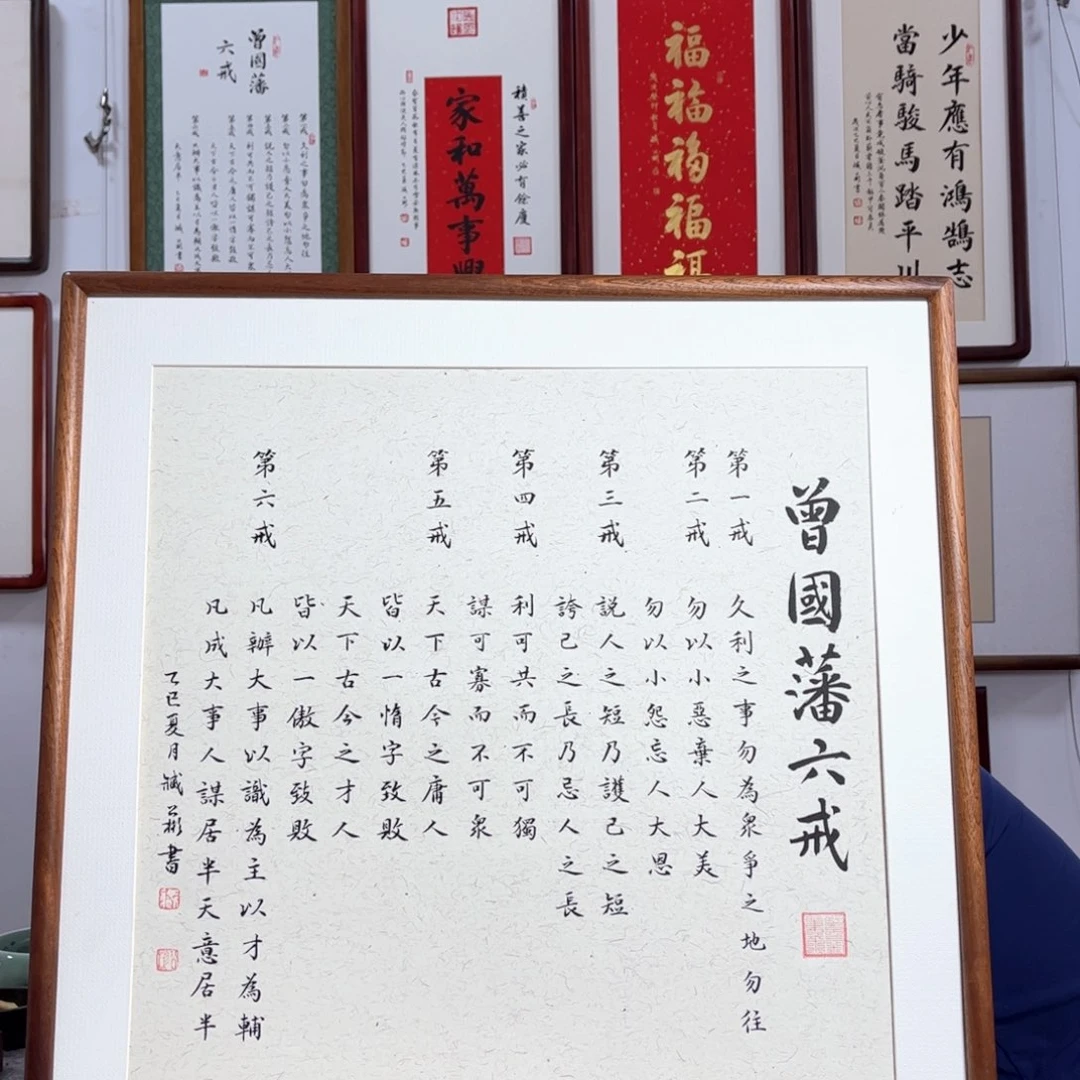 少年應有鴻鵠志
當騎駿馬踏平川
福福福福福
積善之家必有餘慶
家和萬事興
曾國藩
六戒
曾國藩六戒
第一戒 久利之事勿為衆爭之地勿往
第二戒 勿以小惡棄人大美
勿以小怨忘人大恩
第三戒 説人之短乃護己之短
誇己之長乃忌人之長
第四戒 利可共而不可獨
謀可寡而不可衆
第五戒 天下古今之庸人
皆以一惰字致敗
天下古今之才人
皆以一傲字致敗
第六戒 凡辦大事以識為主以才為輔
凡成大事人謀居半天意居半
乙巳夏月臧書